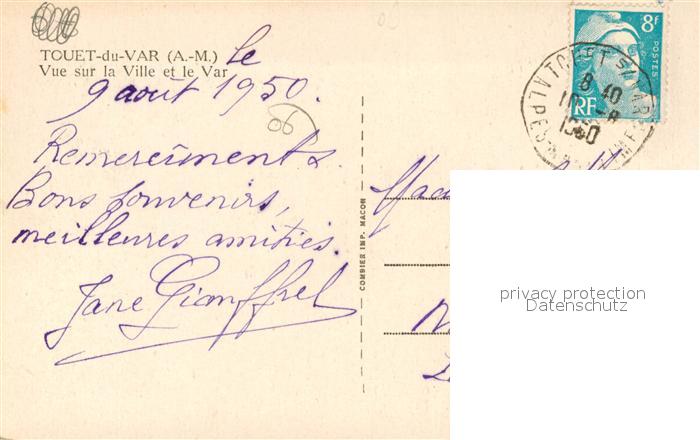 TOUET-du-VAR (A.-M.) le
Vue sur la Ville et le Var
9 août 1950.
Remerciments.
Bons souvenirs,
meilleures amitiés.
Jane Gianffrel
COMBIER IMP. MACON
8f
POSTES
RF
TOUET s/ VAR
8 40
10 -8
1950
ALPES MARITIMES
privacy protection
Datenschutz